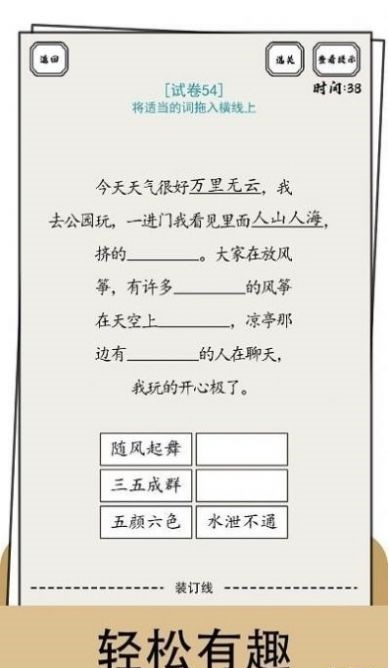 返回
选关
查看提示
[试卷54]
时间:38
将适当的词拖入横线上
今天天气很好万里无云，我
去公园玩，一进门我看见里面人山人海，
挤的________。大家在放风
筝，有许多________的风筝
在天空上________，凉亭那
边有________的人在聊天，
我玩的开心极了。
随风起舞
三五成群
五颜六色 水泄不通
装订线
轻松有趣